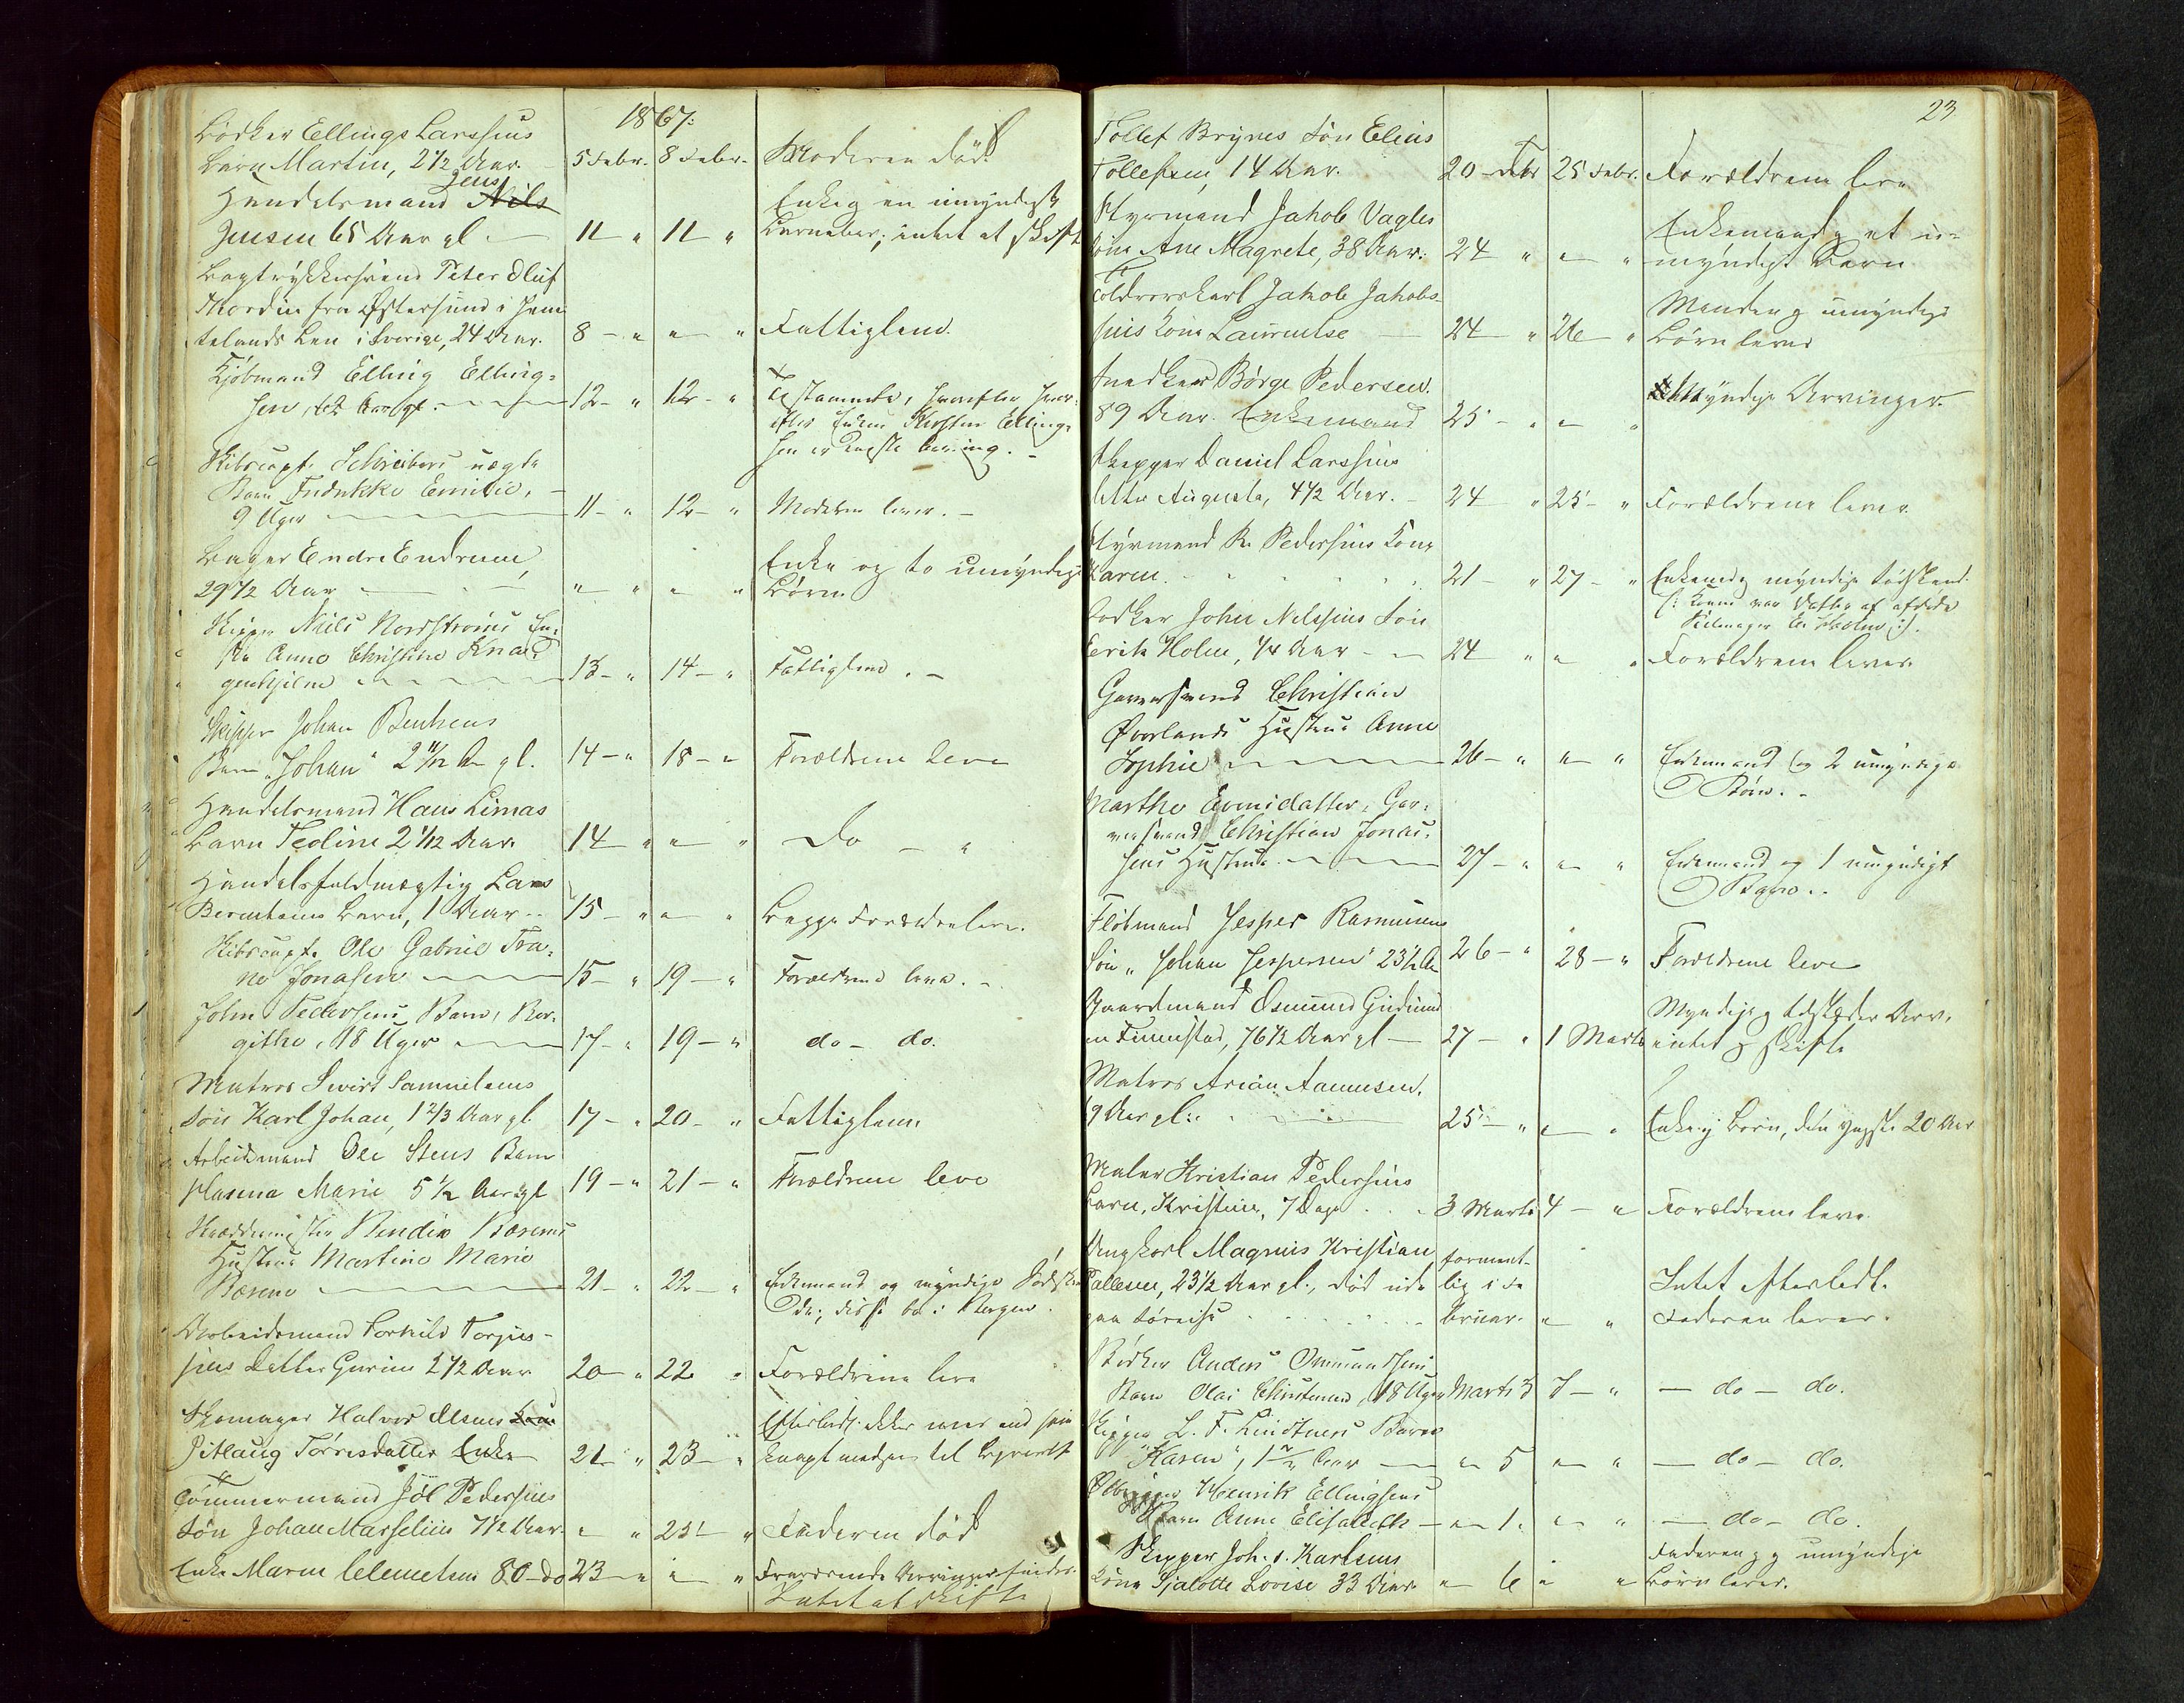 1867.
Bødker Ellings Larssens
Barn Martin, 2 1/2 Aar. 5 Febr. 8 Febr. Moderen død
Handelsmand Nils Jens
Jensen 65 Aar gl. — 11 " 11 " Enke og en umyndig
Barnebarn; intet at skifte
Bogtrykkersvend Peter Oluf
Nordin fra Østersund i Jem
telands Len i Sverige, 24 Aar. 8 — " " — " Fattiglem.
Kjøbmand Elling Elling-
sen, 62 Aar gl. 12 — " 12 — " Testamente, hvorefter
Enken Kirsten Elling-
sen er eneste Arving. —
Skibscapt. Schreibers uægte
Barn Fredrikke Emilie, —
9 Uger 11 — " 12 — " Moderen lever. —
Bager Endre Endresen,
29 1/2 Aar " " " " Enke og to umyndige
Børn
Skipper Niels Nordstrøms En-
ke Anne Christine Knud
13 — " 14 — " Fattiglem. —
Skipper Johan Bentsens
Barn "Johan" 2 11/12 Aar gl. 14 — " 18 — " Forældrene leve
Handelsmand Hans Limas
Barn Teoline 2 1/12 Aar. 14 — " " — " Do — "
Handelsfuldmægtig Lars
Berentsens Barn, 1 Aar 15 — " " — " Begge Forældre leve.
Skibscapt. Ole Gabriel Tra-
ne Jonassen 15 — " 19 — " Forældrene leve. —
John Pedersens Barn, Ber-
githe, 18 Uger 17 — " 19 — " do — do.
Matros Sivert Samuelsens
Søn Karl Johan, 1 2/3 Aar gl. 17 — " 20 — " Fattiglem.
Arbeidsmand Ole Stens Barn
Hasena Marie 5 1/2 Aar gl 19 — " 21 — " Forældrene leve
Skræddermester Rasmus
Hustru Martine Marie
21 — " 22 — " Enkemand og myndige Sødsken
de; disse bo i Bergen.
Arbeidsmand Torkild Torjus-
sens Datter Gurine 2 1/2 Aar 20 — " 22 " Forældrene leve
Skomager Halvor Olsens Kone
Sitlaug Tørresdatter Enke 21 " 23 — " Efterladt ikke mer end som
knapt medgaar til Begravelse
Tømmermand Jøl Pedersens
Søn Johan Marselius 7 1/2 Aar. " " 25 — " Faderen død
Enke Maren Clemetsen 80 — do 23 — " " " Fraværende Arvinger findes.
Intet at skifte
23
Tollef Brynes Søn Elias
Tollefsen, 14 Aar. 20 — Febr 25 Febr. Forældrene leve
Styrmand Jakob Vagles
Kone Ane Magrete, 38 Aar. 24 " " — " Enkemand og et u-
myndigt Barn
Toldroerskarl Jakob Jakob-
sens Kone Laurentse — 24 — " 26 — " Manden og umyndige
Børn lever
Snedker Børge Pedersen.
89 Aar. Enkemand 25 — " " — " Myndige Arvinger.
Skipper Daniel Larssens
Datter Augusta, 4 1/2 Aar. — 24 — " 25 — " Forældrene lever.
Styrmand R. Pedersens Kone
Karen. 21 — " 27 — " Enkemd. og myndige Sødskend.
(: Konen var Datter af afdøde
Seilmager Holm :).
Bødker John Nilssens Søn
Erik Holm, 1/4 Aar — — 24 " " " Forældrene lever.
Garversvend Christian
Øverlands Hustru Anne
Sophie 26 — " " — " Enkemand og 2 umyndige
Børn. —
Marthe Evensdatter, Gar-
versvend Christian Jonas-
sens Hustru 27 — " " — " Enkemand og 1 umyndigt
Barn. —
Fløtmand Jesper Rasmussens
Søn "Johan Jespersen" 23 1/2 Aar 26 — " 28 — " Forældrene leve
Gaardmand Osmund Gudmund
sen Finnestad, 76 1/2 Aar gl — 27 — " 1 Marts Myndige og Arv.
intet at skifte
Matros Arian Aanensen,
Aar gl: 25 — " " — " Enke og Børn, den yngste 20 Aar
Maler Kristian Pedersens
Barn, Kristine, 7 Dage 3 Marts 4 — " Forældrene leve
Ungkarl Magnus Kristian
Pallesen, 23 1/2 Aar gl., død ude forment-
lig i Fe
paa Søreise bruar. " " Intet efterladt.
Faderen lever.
Bødker Anders Ommundsens
Barn Olai Christiand, 18 Uger Marts 3 7 — " — do — do.
Skipper L. F. Lindtners Barn
"Karen", 1 1/2 Aar — " 5 " " — do — do.
Henrik Ellingsens
Barn Anne Elisabeth — " 1. " " — do — do.
Skipper Joh. S. Karlsens
Kone Sjalotte Lovise 33 Aar. " 6 " " Faderen og umyndige
Børn lever.